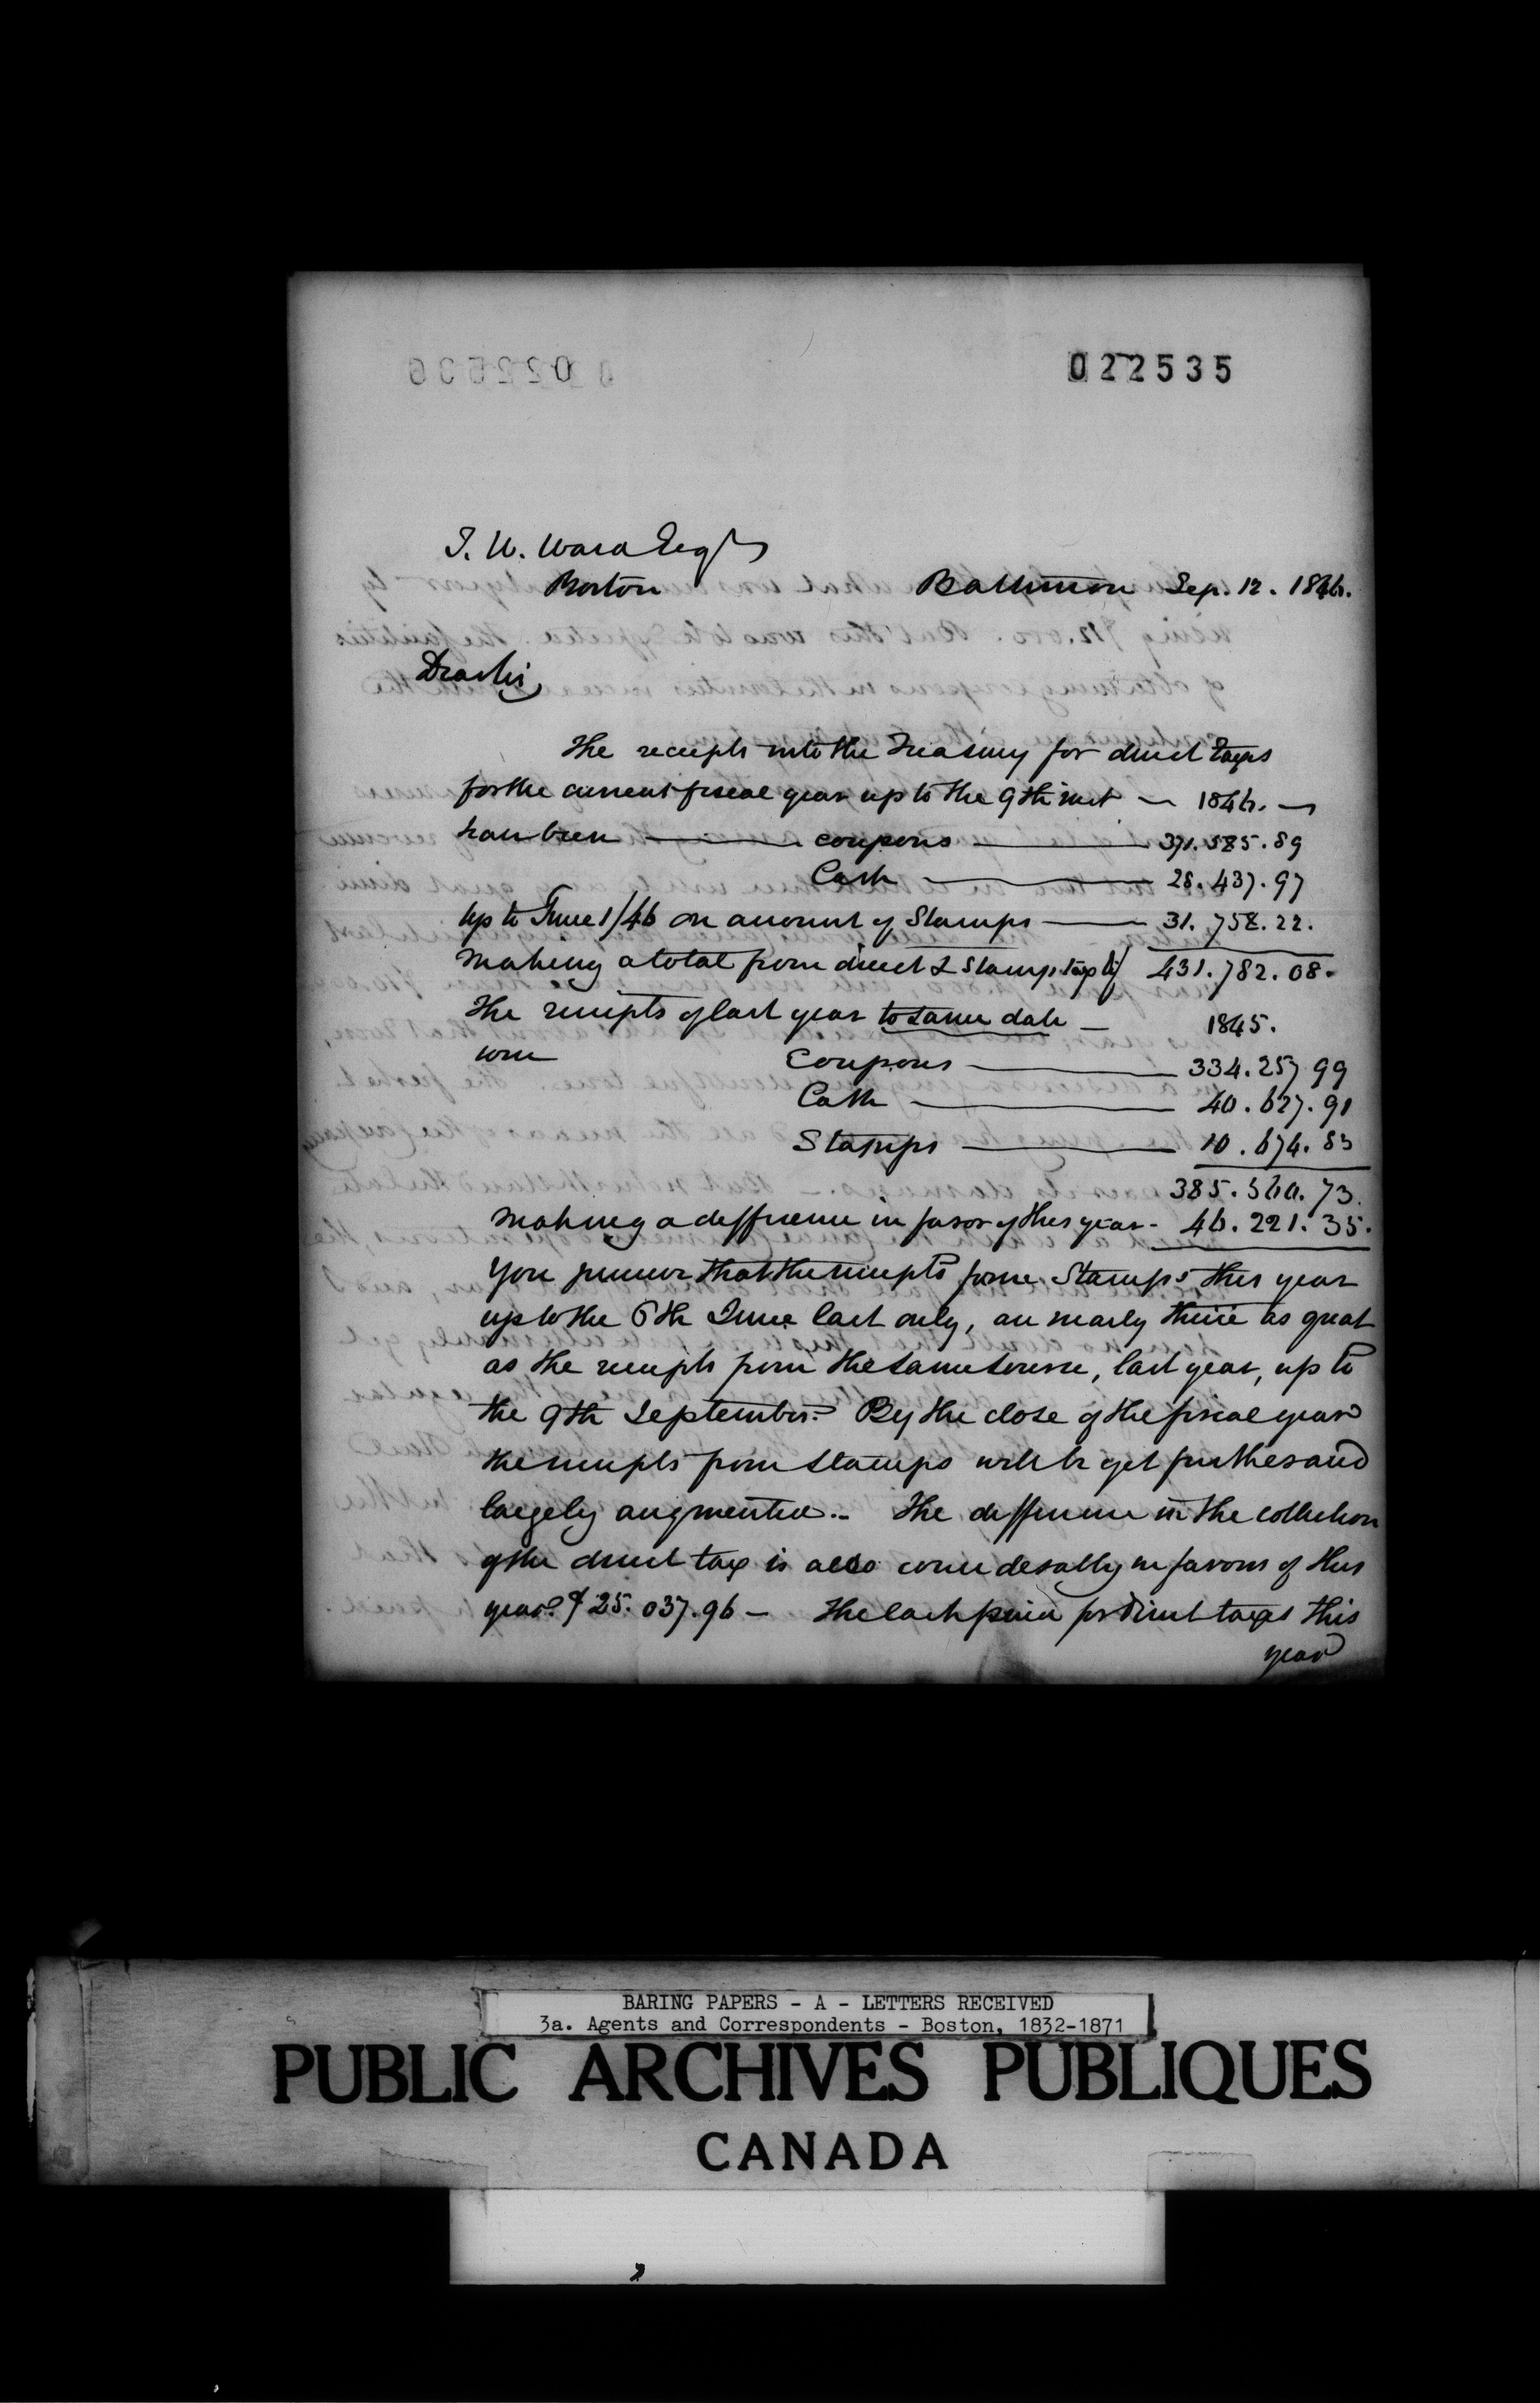 022535
T. W. Ward Esqr
Boston
Baltimore Sep. 12. 1846.
Dear Sir,
The receipts into the Treasury for direct taxes
for the current fiscal year up to the 9th inst — 1846. —
have been — coupons — 371.585.89
Cash — 28.437.97
Up to June 1/46 on amount of Stamps — 31.758.22.
Making a total from direct & Stamp tax of 431.782.08.
The receipts of last year to same date — 1845.
were Coupons — 334.257.99
Cash — 40.627.91
Stamps — 10.674.83
385.560.73.
Making a difference in favor of this year - 46.221.35.
You perceive that the receipts from Stamps this year
up to the 6th June last only, are nearly thrice as great
as the receipts from the same source, last year, up to
the 9th September. By the close of the fiscal year
the receipts from Stamps will be yet further and
largely augmented. - The difference in the collection
of the direct tax is also considerably in favour of this
year. $25.037.96 — The cash paid for direct taxes this
year
BARING PAPERS - A - LETTERS RECEIVED
3a. Agents and Correspondents - Boston, 1832-1871
PUBLIC ARCHIVES PUBLIQUES
CANADA